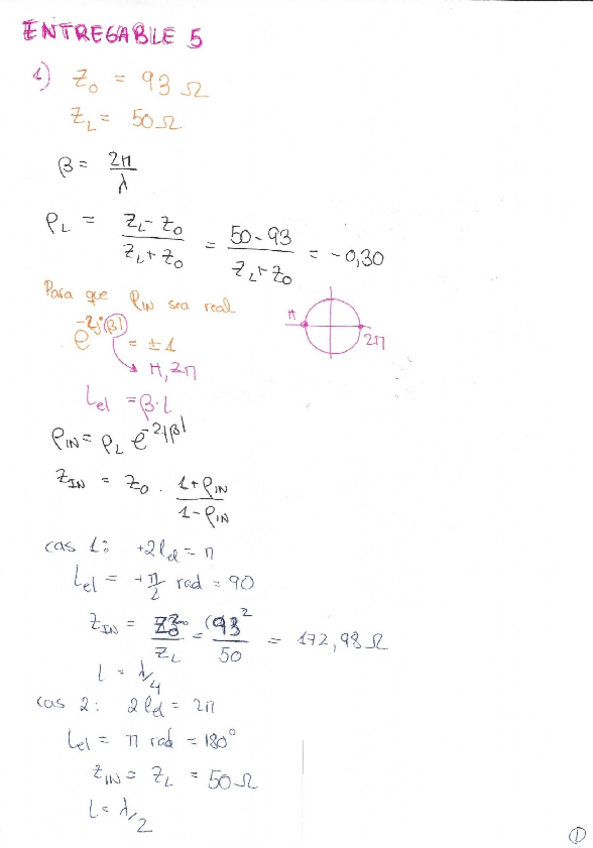 ENTREGABLE 5
1) Z₀ = 93 Ω
Z_L = 50Ω
β = 2π/λ
ρ_L = (Z_L - Z₀)/(Z_L + Z₀) = (50-93)/(Z_L + Z₀) = -0,30
Para que ρ_IN sea real
e^(-2j(βl)) = ±1
π
2π
π, 2π
L_el = β·l
ρ_IN = ρ_L e^(-2jβl)
Z_IN = Z₀ · (1+ρ_IN)/(1-ρ_IN)
cas 1: +2l_el = π
L_el = +π/2 rad = 90
Z_IN = Z₀²/Z_L = (93)²/50 = 172,98Ω
l = λ/4
cas 2: 2l_el = 2π
L_el = π rad = 180°
Z_IN = Z_L = 50Ω
l = λ/2
1